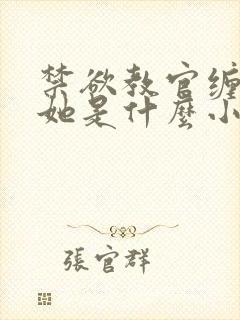 禁欲教官缠
她是什麼小
張官群